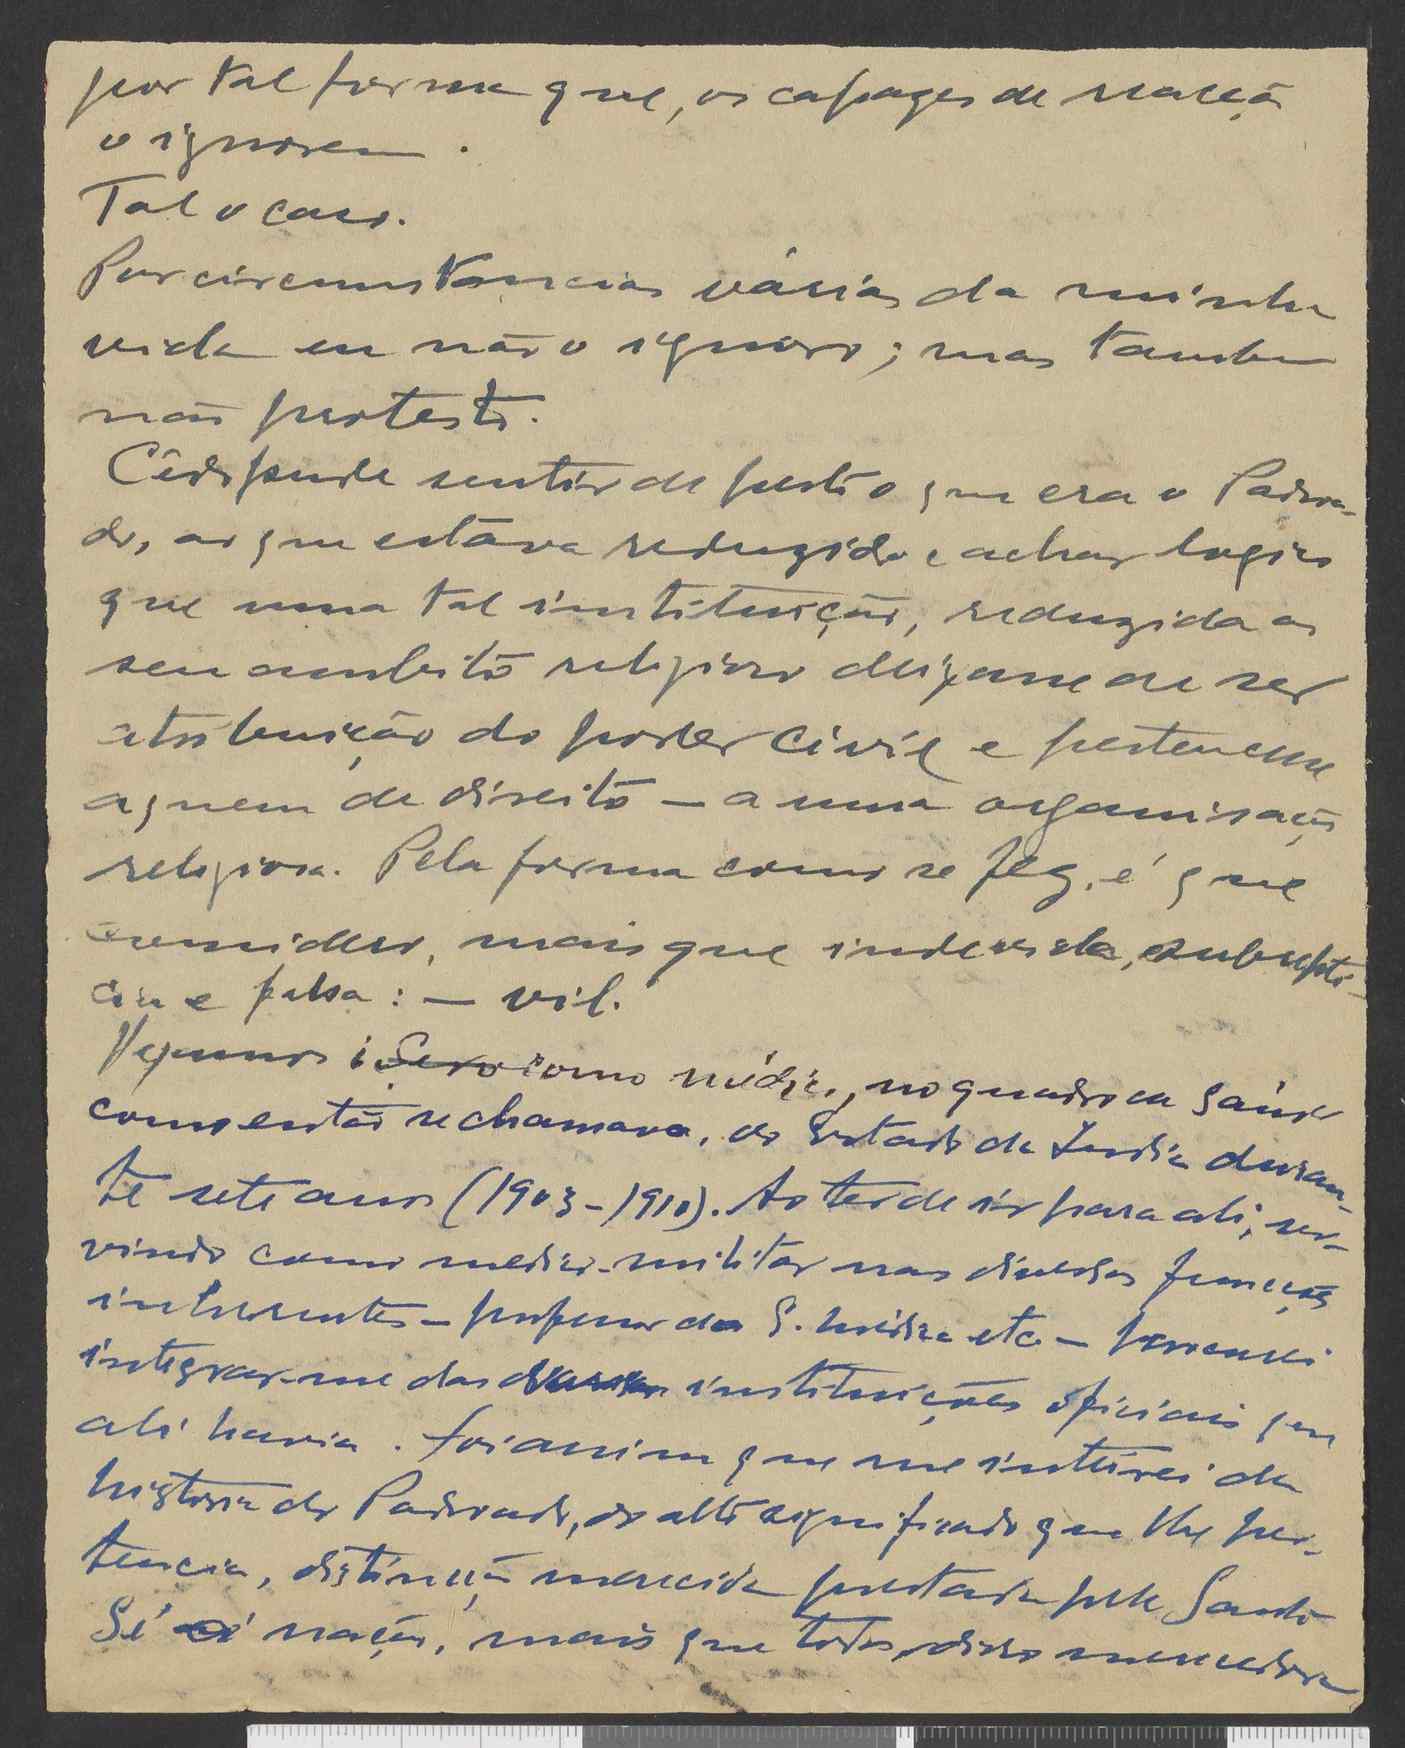 por tal forma que, os capazes de reacção
o ignorem.
Tal o caso.
Por circumstancias várias da minha
vida eu não o ignoro; mas tambem
não protesto.
Cêdo pude sentir de perto o que era o Padroa-
do, ao que estava reduzido e achar logico
que uma tal instituição, reduzida ao
seu ambito religioso deixasse de ser
atribuição do poder civil e pertencesse
a quem de direito — a uma organisação
religiosa. Pela forma como se fez, é que
considero, mais que indevida, subrepti-
cia e falsa: — vil.
Vejamos: como médico, no quadro da saúde
como então se chamava, do Estado da India duran-
te sete anos (1903-1910). Ao ter de ir para ali, ser-
vindo como medico-militar nas diversas funcções
inherentes — professor da E. Médica etc —
integrar-me das instituições oficiais que
ali havia. Foi assim que me inteirei da
historia do Padroado, do alto significado que lhe per-
tencia, distincção merecida prestada pela Santa
Sé á nação, mais que todas, disso merecedora